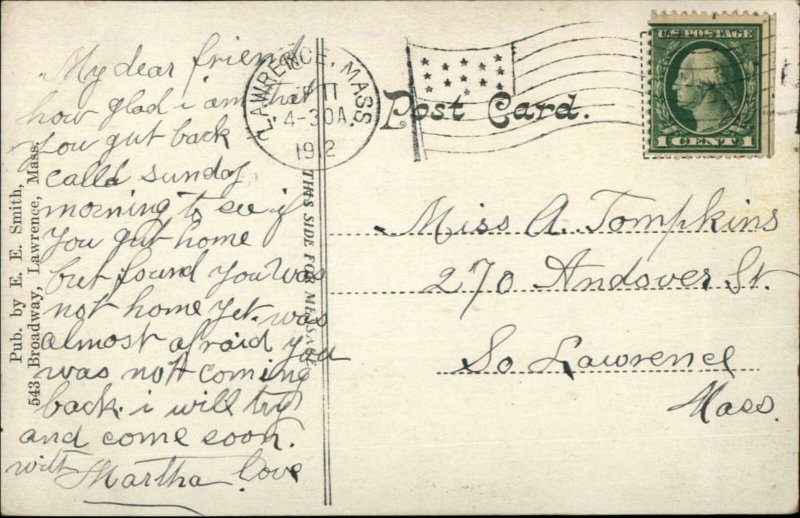 My dear friend
how glad i am that
you gut back
calld sunday
morning to see if
you gut home
but found you was
not home yet. was
almost afraid you
was not coming
back. i will try
and come soon.
with love
Martha
Pub. by E. E. Smith,
543 Broadway, Lawrence, Mass.
THIS SIDE FOR MESSAGE
LAWRENCE, MASS.
11
4-30A
1912
Post Card.
U.S. POSTAGE
1 CENT 1
Miss A. Tompkins
270 Andover St.
So Lawrence
Mass.